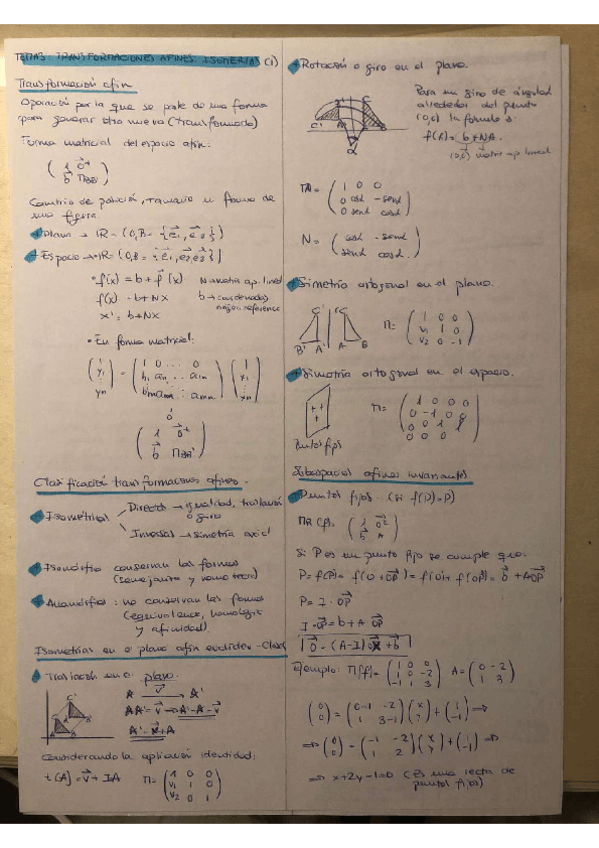 TRANSFORMACIONES AFINES. ISOMETRÍAS (1)
Transformación afín
Operación por la que se parte de una forma
para generar otra nueva (transformada)
Forma matricial del espacio afín:
( 1 0
b MBB' )
Cambio de posición, tamaño u forma de
una figura
Plano → IR = (0,B = {e1, e2})
Espacio → IR = {0,B = {e1, e2, e3}]
• f(x) = b + f (x) N matriz ap. lineal
f(x) = b + NX b → coordenadas
x' = b + NX
• En forma matricial:
( 1 y1 : yn ) = ( 1 0 ... 0
b1 a11 ... a1n
) ( 1 : )
ó
( 1 0
b MBB' )
Clasificación transformaciones afines.
Isométricas
Directa → igualdad, traslación
o giro
Inversas → simetría axial
conservan las formas
(semejanza y homotecia)
Anamórficas: no conservan las formas
(equivalencia, homología
y afinidad)
Isometrías en el plano afín euclídeo
Traslación en el plano.
A v A'
AA' = v → A' - A = v
A' = v + A
C'
Considerando la aplicación identidad:
t(A) = v + IA M = ( 1 0 0
v1 1 0
v2 0 1 )
Rotación o giro en el plano.
Para un giro de ángulo α
alrededor del punto
(0,0) la fórmula es:
f(A) = b + NA.
(0,0) matriz ap. lineal
C' A' A B
α
M = ( 1 0 0
0 cosα -senα
0 senα cosα )
N = ( cosα -senα
senα cosα )
Simetría ortogonal en el plano.
C' C
B' A' A B
M = ( 1 0 0
v1 1 0
v2 0 -1 )
Simetría ortogonal en el espacio.
Puntos fijos
M = ( 1 0 0 0
0 -1 0 0
0 0 1 1
0 0 0 )
Subespacios afines invariantes
Puntos fijos (si f(P)=P)
MR (f) = ( 1 0
b A )
Si P es un punto fijo se cumple que:
P = f(P) = f(0 + OP) = f(0) + f(OP) = b + AOP
P = I · OP
I · OP = b + A OP
0 = (A-I) X + b
Ejemplo: M(f) = ( 1 0 0
1 0 -2
-1 1 3 ) A = ( 0 -2
1 3 )
( 0
0 ) = ( 0-1 -2
1 3-1 ) ( x
y ) + ( 1
-1 ) ⇒
⇒ ( 0
0 ) = ( -1 -2
1 2 ) ( x
y ) + ( 1
-1 ) ⇒
⇒ x + 2y - 1 = 0 (es una recta de
puntos fijos)